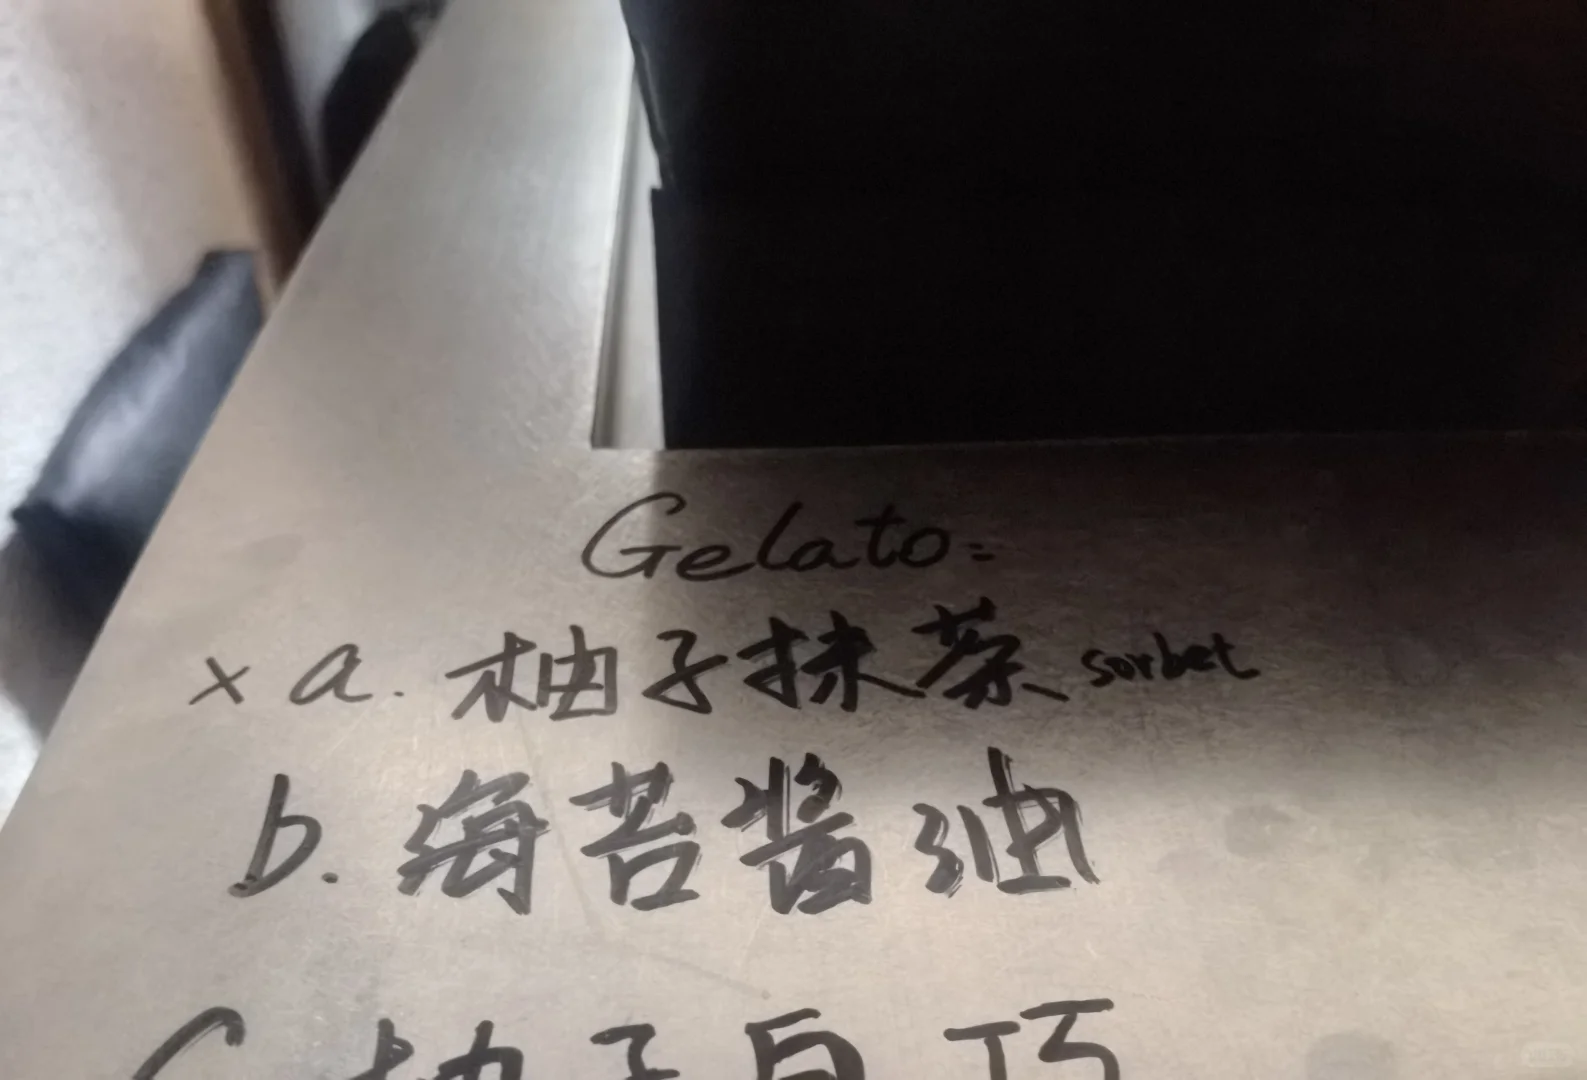 Gelato:
x a. 柚子抹茶 sorbet
b. 海苔酱油
C 柚子白巧